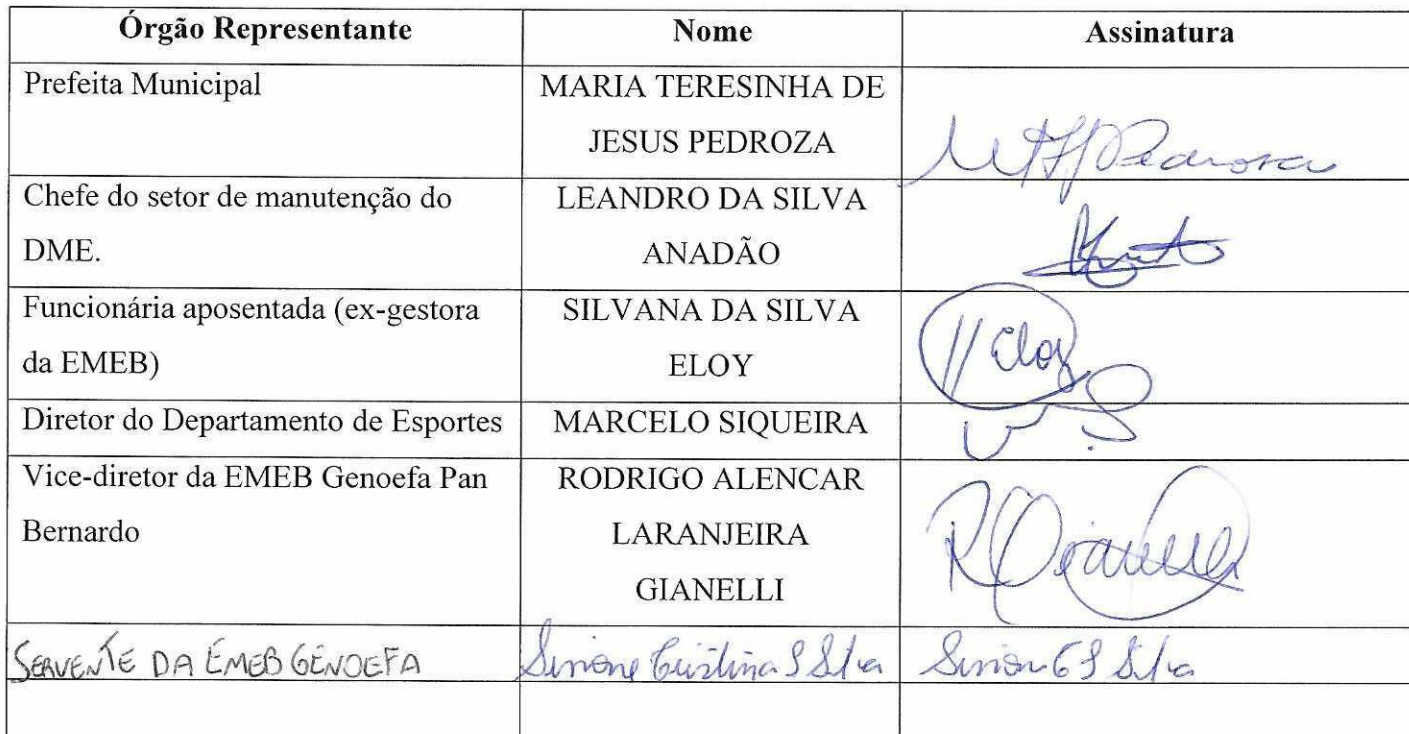 Órgão Representante Nome Assinatura
Prefeita Municipal MARIA TERESINHA DE
JESUS PEDROZA
Pedroza
Chefe do setor de manutenção do LEANDRO DA SILVA
DME. ANADÃO
Funcionária aposentada (ex-gestora SILVANA DA SILVA
da EMEB) ELOY
Eloy
Diretor do Departamento de Esportes MARCELO SIQUEIRA
Vice-diretor da EMEB Genoefa Pan RODRIGO ALENCAR
Bernardo LARANJEIRA
GIANELLI
SERVENTE DA EMEB GENOEFA Simone Cristina S Silva Simone C S Silva